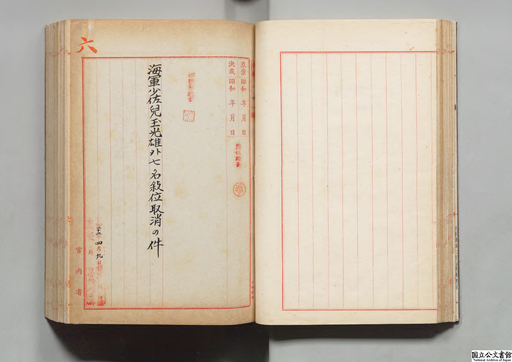 六
立案 昭和 年 月 日
決裁 昭和 年 月 日
海軍少佐兒玉光雄外七名敍位取消の件
宮内省
国立公文書館
National Archives of Japan